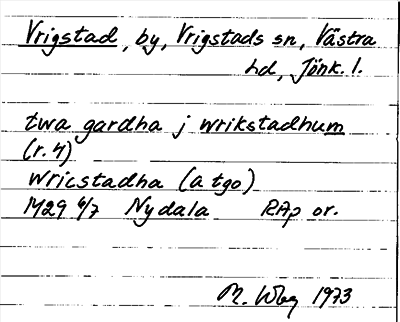 Vrigstad, by, Vrigstads sn, Västra
hd, Jönk. l.
twa gardha j wrikstadhum
(r. 4)
wricstadha (a tgo)
1429 6/7 Nydala RAp or.
M. Wbg 1973